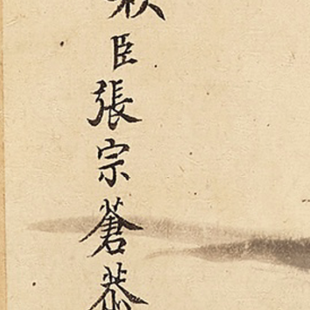 臣張宗蒼恭